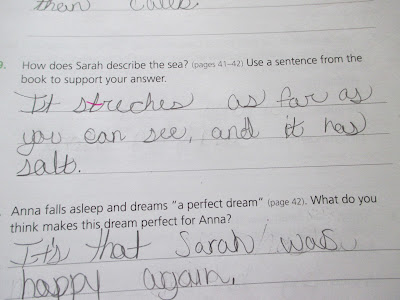 than Caleb.
9. How does Sarah describe the sea? (pages 41–42) Use a sentence from the
book to support your answer.
It streches as far as
you can see, and it has
salt.
Anna falls asleep and dreams "a perfect dream" (page 42). What do you
think makes this dream perfect for Anna?
It's that Sarah was
happy again.